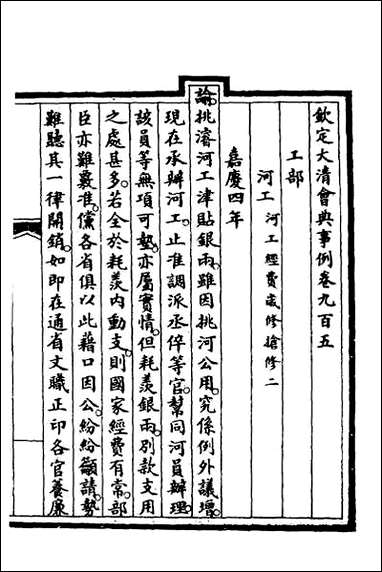 欽定大清會典事例卷九百五
工部
河工 河工經費歲修搶修二
嘉慶四年
諭挑濬河工津貼銀兩雖因挑河公用究係例外議增
現在承辦河工止准調派丞倅等官幫同河員辦理
該員等無項可墊亦屬實情但耗羨銀兩別款支用
之處甚多若全於耗羨內動支則國家經費有常部
臣亦難覈准儻各省俱以此藉口因公紛紛籲請勢
難聽其一律開銷如即在通省文職正印各官養廉